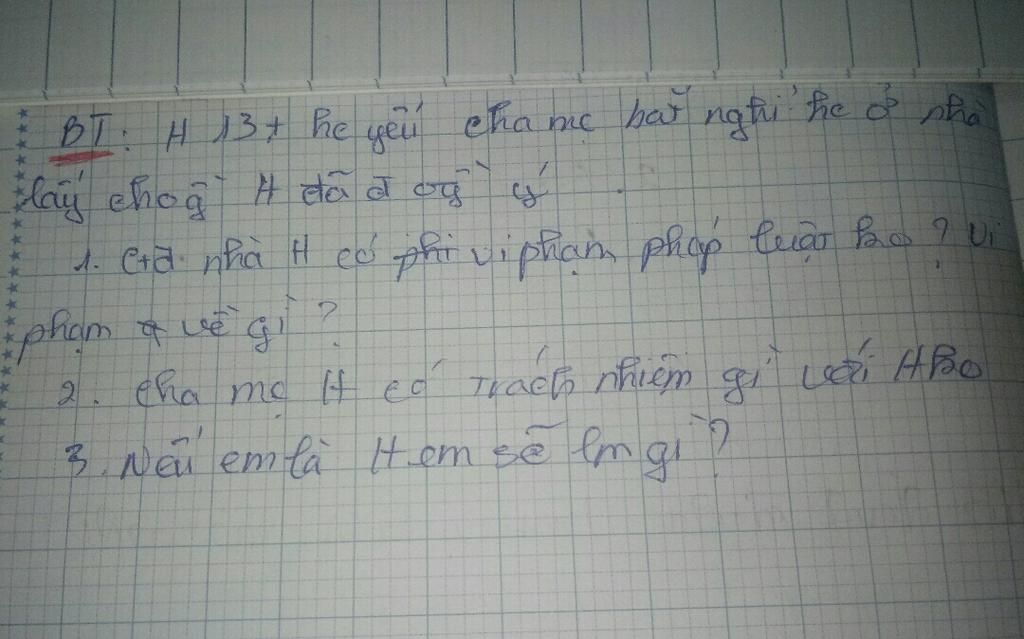 BT: H 13t hc yếu cha mẹ bắt nghỉ hc ở nhà
lấy chồg H đã đ ogồ ý
1. C+đ nhà H có phi vi phạm pháp luật ko? Vi
phạm về gì?
2. Cha mẹ H có trách nhiệm gì với H ko
3. Nếu em là H em sẽ lm gì?